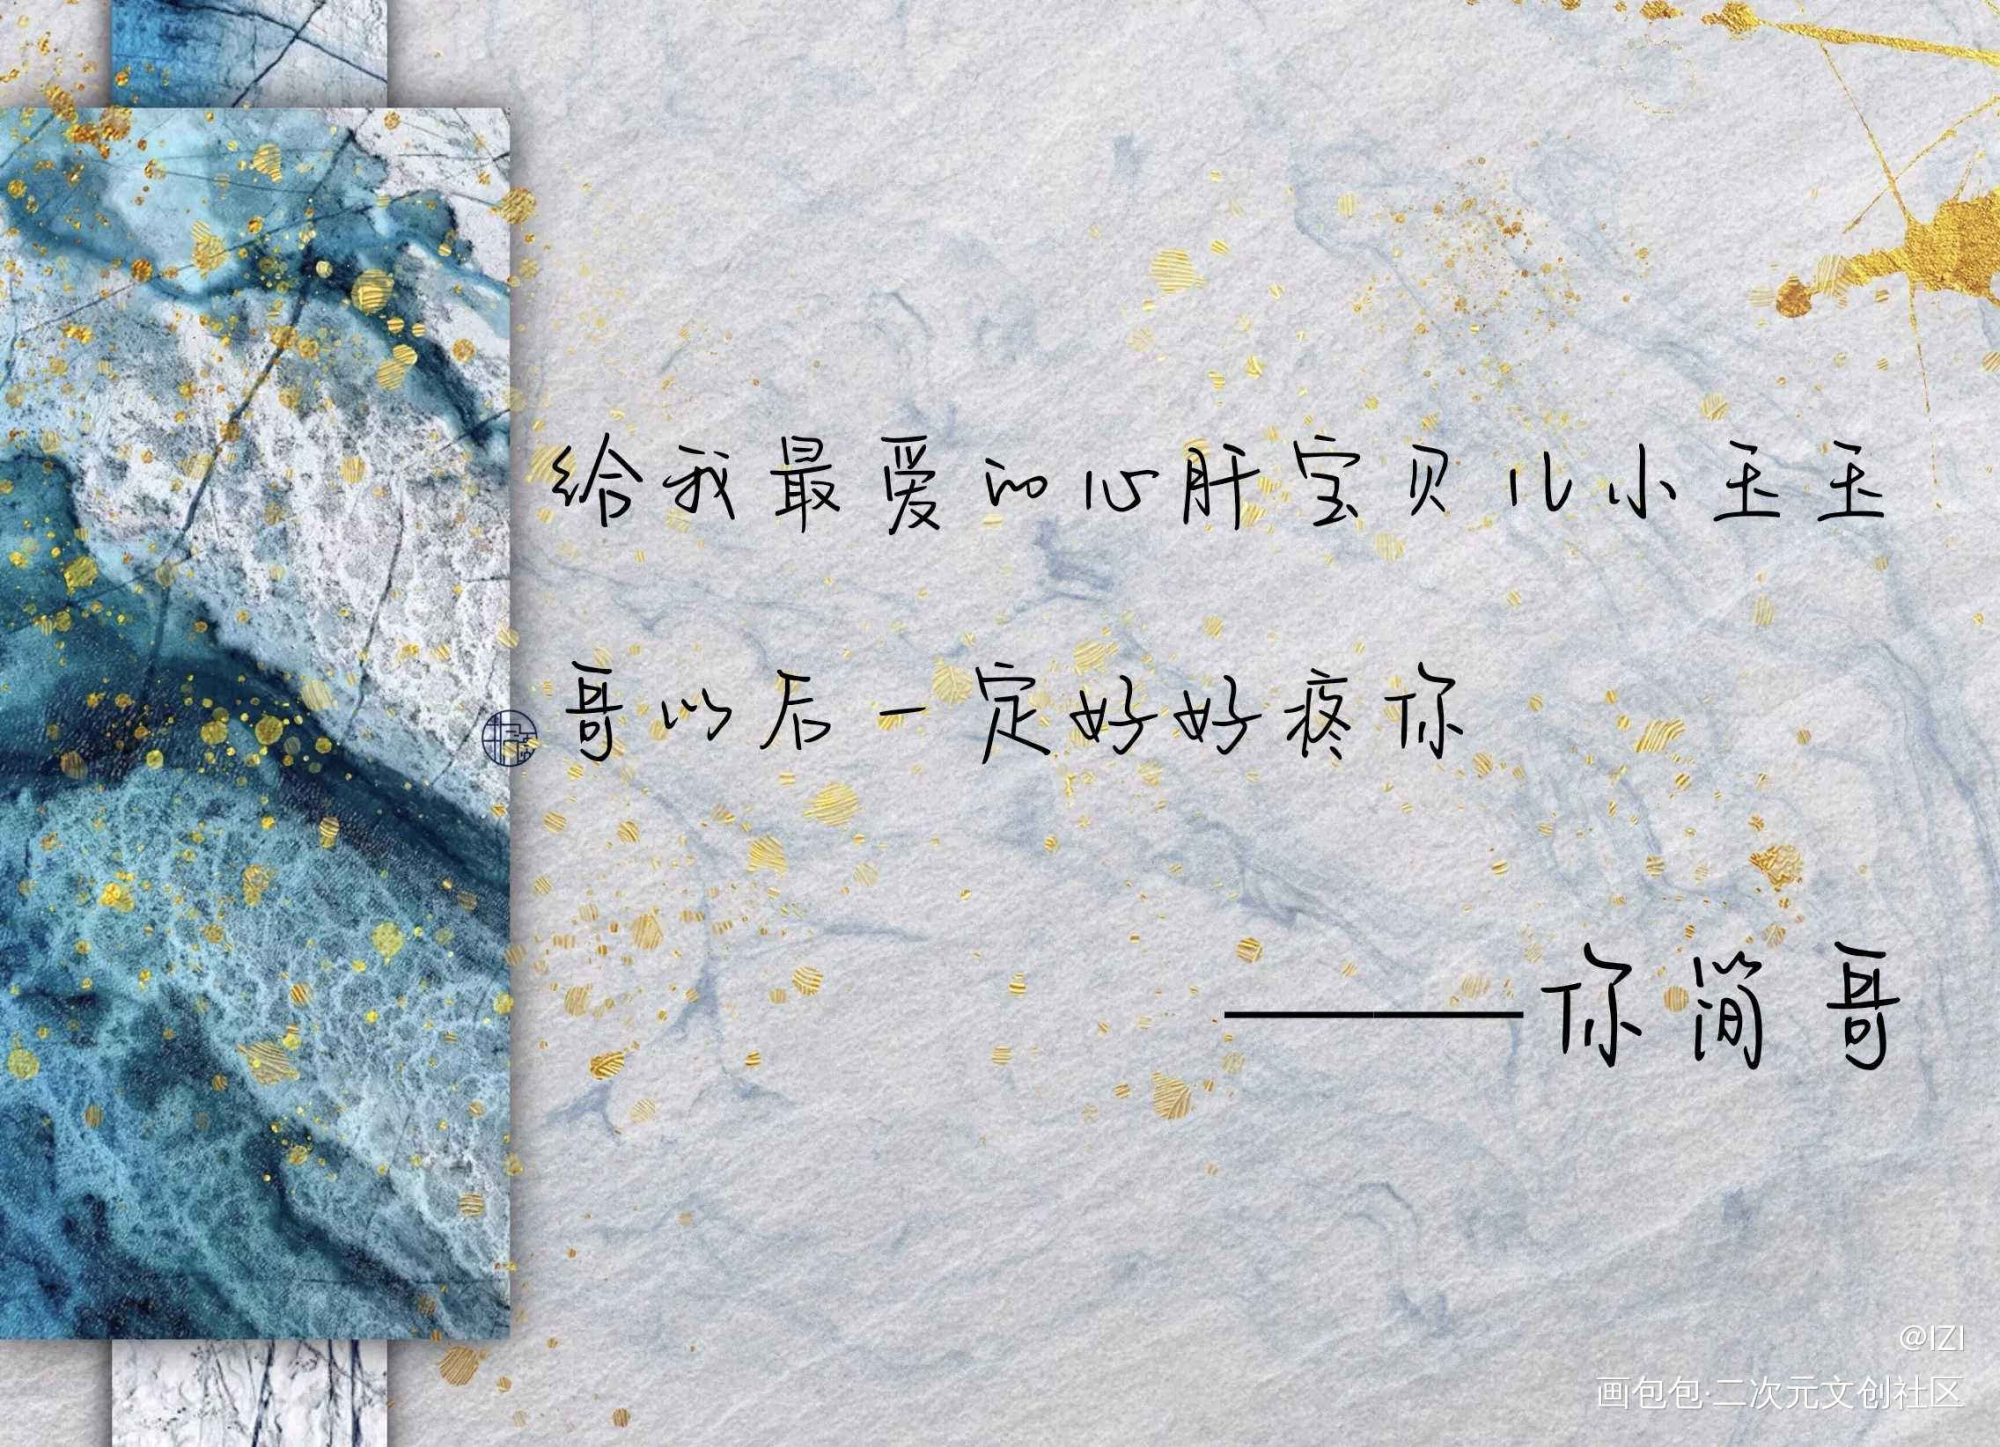 给我最爱的心肝宝贝儿小玉玉
哥以后一定好好疼你
———你简哥
@IZI
画包包·二次元文创社区